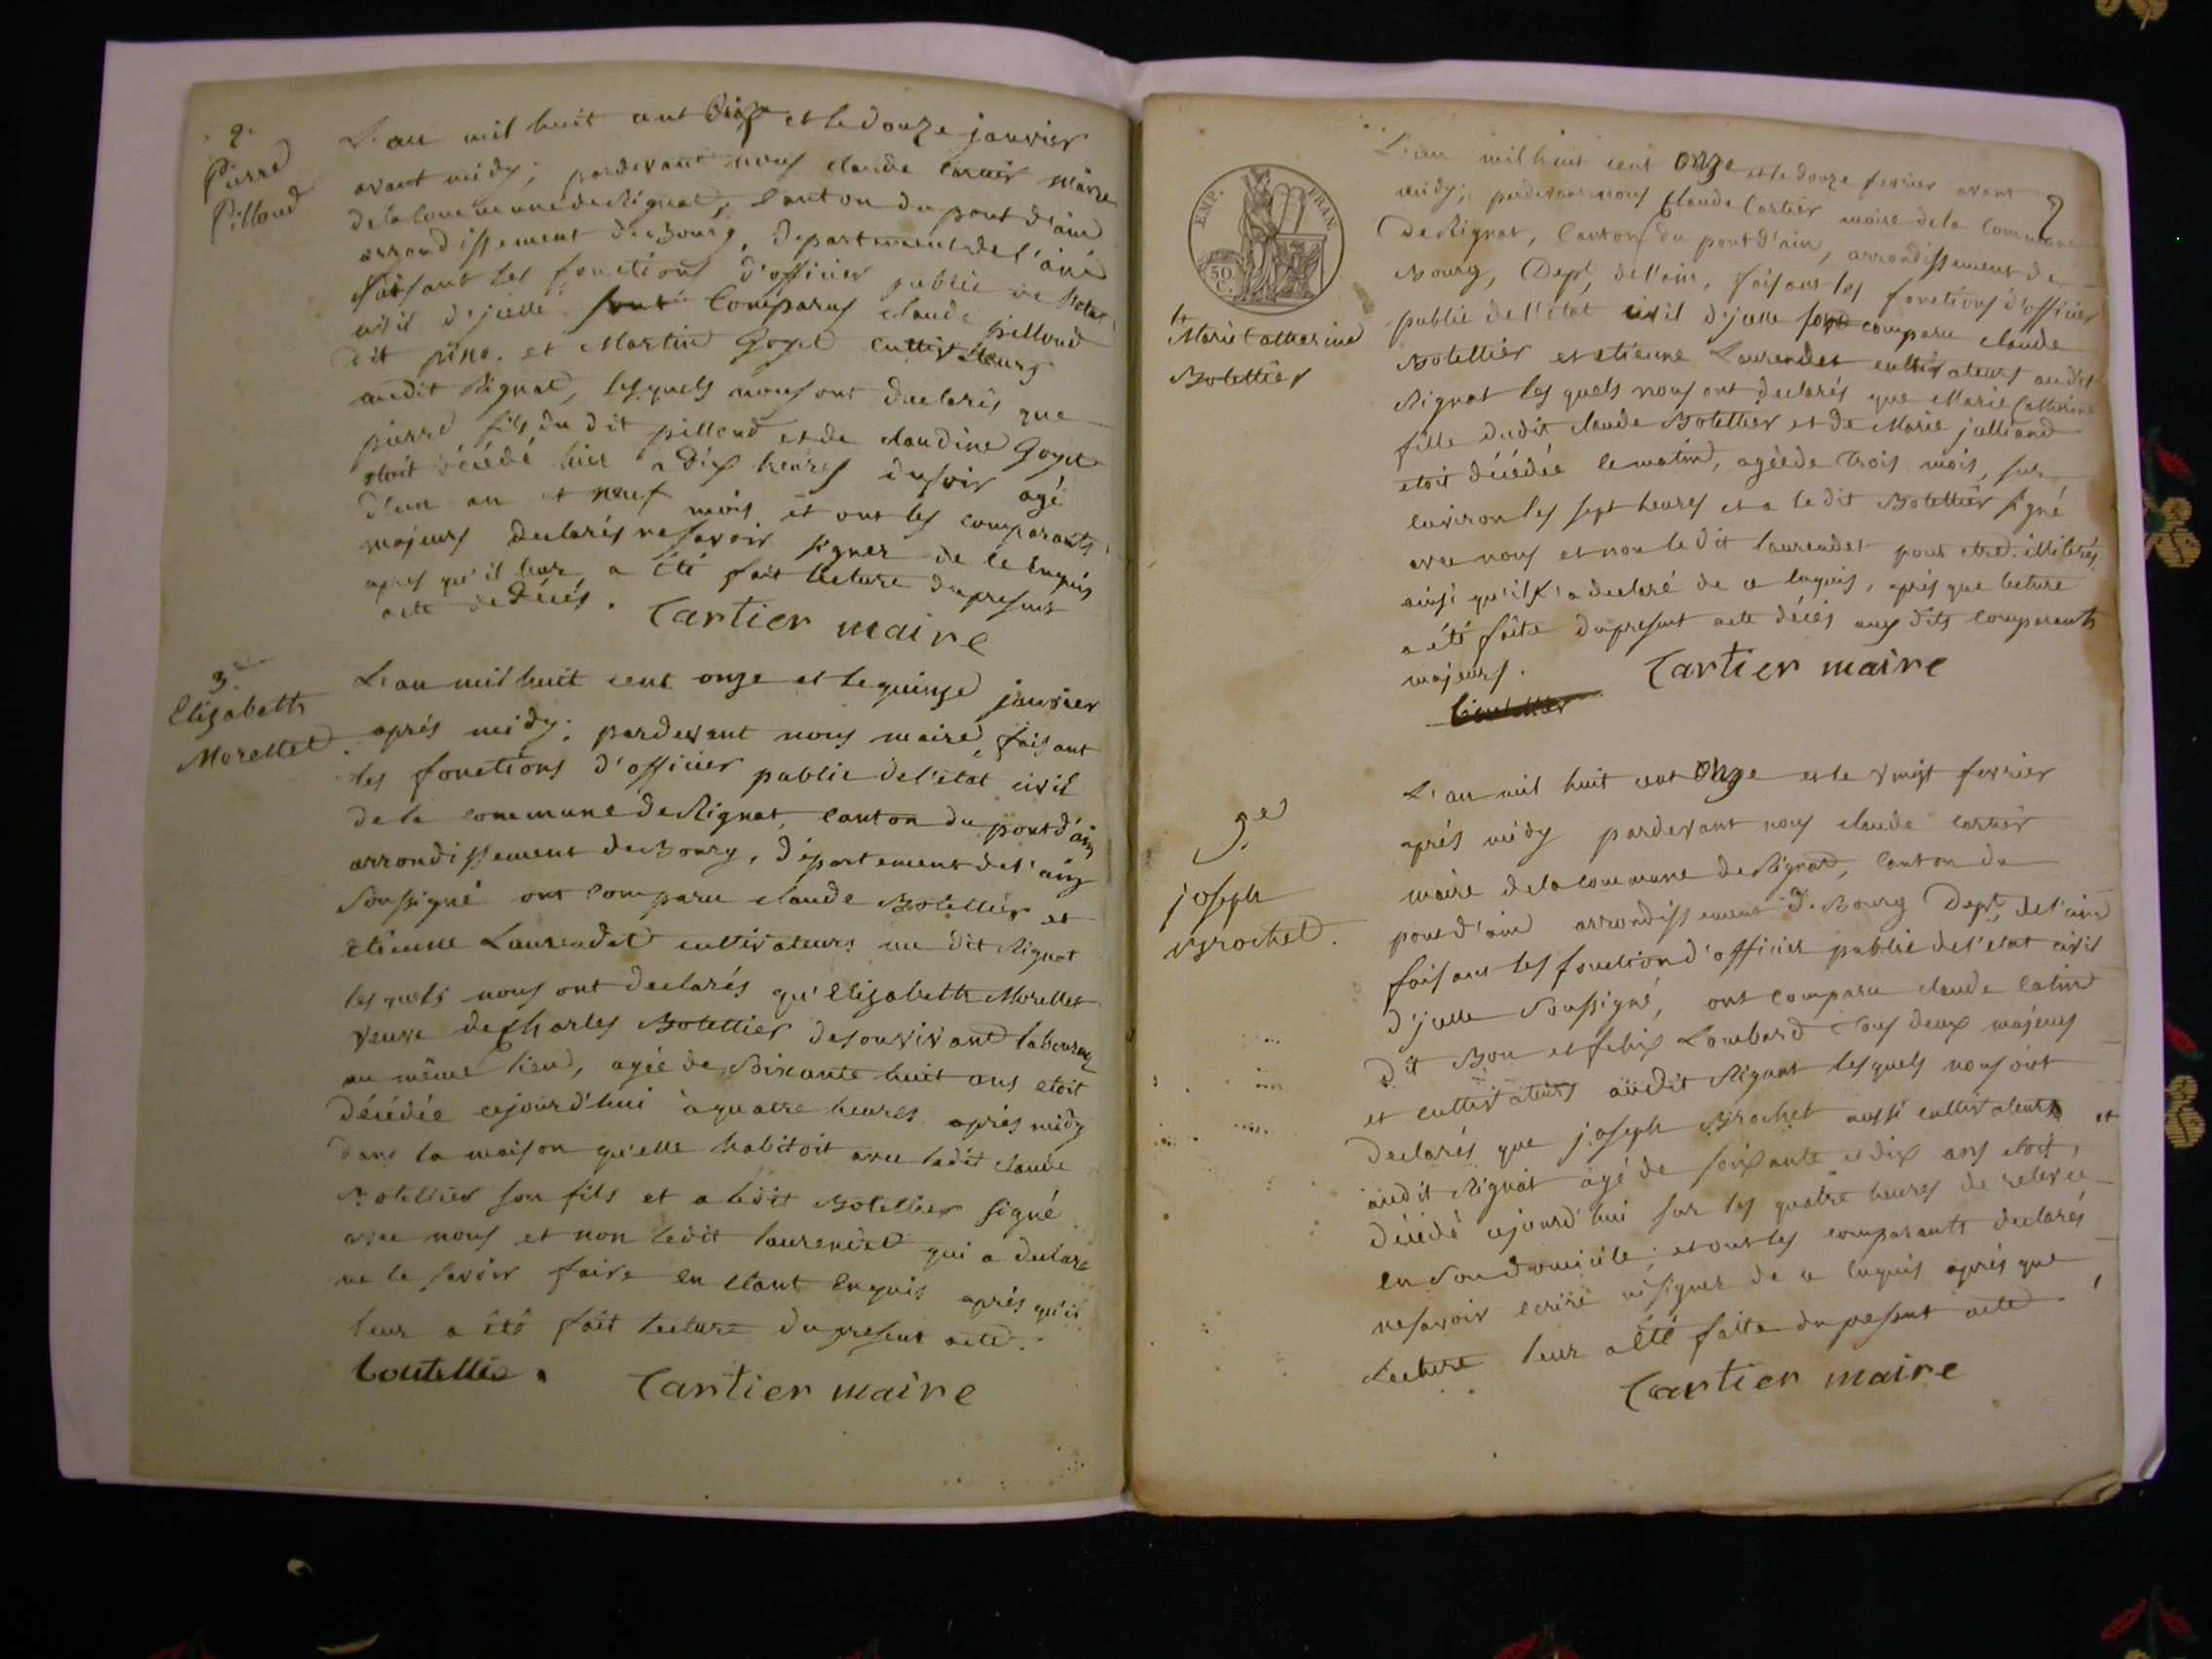 2.
Pierre
Pilloud
L'an mil huit cent onze et le douze janvier
avant midy; pardevant nous claude cartier maire
de la commune de Rignat, canton du pont d'ain
arrondissement de Bourg, departement de l'ain
faisant les fonctions d'officier public de l'etat
civil d'jcelle sont comparus claude pilloud
dit et Martin Goyet cultivateurs
audit Rignat, lesquels nous ont declarés que
pierre fils du dit pilloud et de claudine Goyet
etoit décédé hier a dix heures du soir agé
d'un an et neuf mois et ont les comparants
majeurs declarés ne savoir signer de ce enquis
apres qu'il leur a été fait lecture du present
acte de décès.
Cartier maire
3e
Elizabeth
Morellet.
L'an mil huit cent onze et le quinze janvier
après midy; pardevant nous maire, faisant
les fonctions d'officier public de l'état civil
de la commune de Rignat, canton du pont d'ain
arrondissement de Bourg, département de l'ain
soussigné ont comparu claude Botellier et
etienne Laurendet cultivateurs au dit Rignat
lesquels nous ont declarés qu'Elizabeth Morellet
veuve de Charles Botellier de son vivant laboureur
au même lieu, agée de soixante huit ans etoit
décédée cejourd'hui à quatre heures après midy
dans la maison qu'elle habitoit avec ledit claude
Botellier son fils et a ledit Botellier signé
avec nous et non ledit laurendet qui a declaré
ne le savoir faire en etant enquis après qu'il
leur a été fait lecture du present acte.
Boutellie.
Cartier maire
EMP. FRAN.
50 C.
4
Marie Catherine
Botellier
L'an mil huit cent onze et le douze fevrier avant
midy; pardevant nous Claude Cartier maire de la commune
de Rignat, canton du pont d'ain, arrondissement de
Bourg, Dept de l'ain, faisant les fonctions d'officier
public de l'etat civil d'jcelle sont comparu claude
Botellier et etienne Laurendet cultivateurs audit
Rignat les quels nous ont declarés que Marie Catherine
fille dudit claude Botellier et de Marie julliand
etoit décédée le matin, agée de trois mois, sur
environ les sept heures et a le dit Botellier signé
avec nous et non le dit laurendet pour etre illiteré,
ainsi qu'il l'a declaré de ce enquis, après que lecture
a été faite du present acte décès aux dits comparants
majeurs.
Cartier maire
5e
joseph
Brochet.
L'an mil huit cent onze et le vingt fevrier
après midy pardevant nous claude cartier
maire de la commune de Rignat, canton du
pont d'ain arrondissement de Bourg Dept de l'ain
faisant les fonction d'officier public de l'etat civil
d'jcelle soussigné, ont comparu claude catin
dit Bon et felix Lombard tous deux majeurs
et cultivateurs audit Rignat lesquels nous ont
declarés que joseph Brochet aussi cultivateur et
audit Rignat agé de soixante et dix ans etoit
décédé cejourd'hui sur les quatre heures de relevée
en son domicile; et ont les comparants declarés
ne savoir ecrire ni signer de ce enquis après que
lecture leur a été faite du present acte
Cartier maire